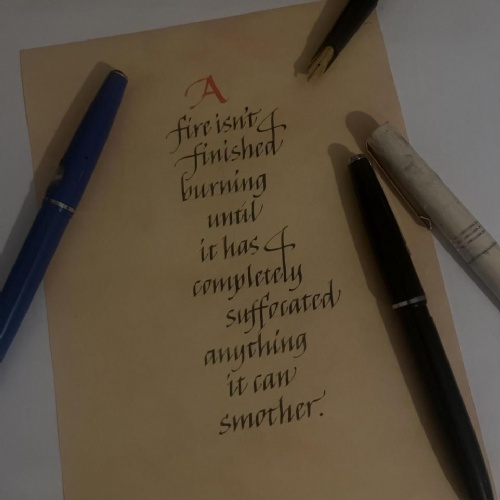 A
fire isn't &
finished
burning
until
it has &
completely
suffocated
anything
it can
smother.